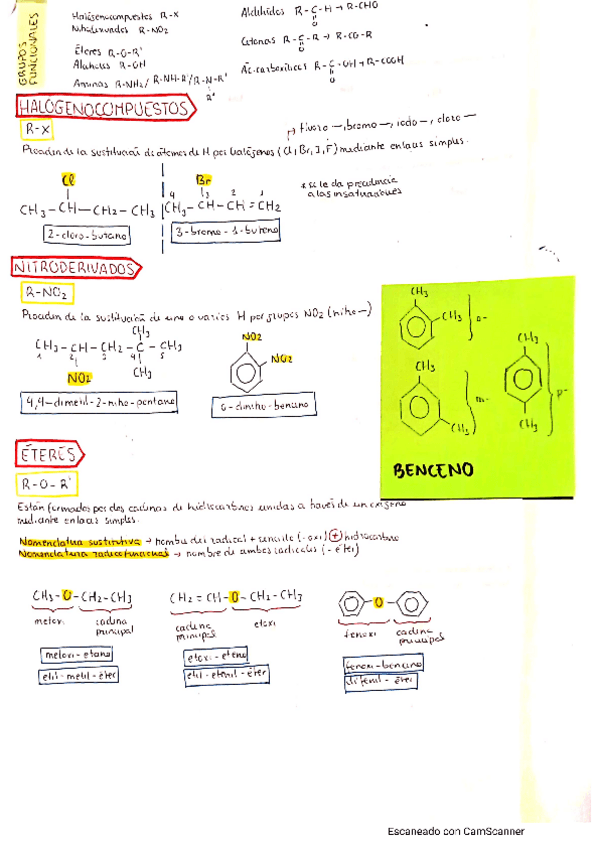 GRUPOS FUNCIONALES
Halógenocompuestos R-X
Nitroderivados R-NO2
Éteres R-O-R'
Alcoholes R-OH
Aminas R-NH2/ R-NH-R'/R-N-R'
R''
Aldehídos R-C-H → R-CHO
O
Cetonas R-C-R → R-CO-R
O
Ác-carboxílicos R-C-OH → R-COOH
O
HALOGENOCOMPUESTOS
R-X
fluoro—, bromo—, iodo—, cloro—
Proceden de la sustitución de átomos de H por halógenos (Cl, Br, I, F) mediante enlaces simples.
Cl
CH3-CH-CH2-CH3
2-cloro-butano
Br
4 3 2 1
CH3-CH-CH=CH2
3-bromo-1-buteno
* se le da preferencia
a las insaturaciones
NITRODERIVADOS
R-NO2
Proceden de la sustitución de uno o varios H por grupos NO2 (nitro—)
CH3
CH3-CH-CH2-C-CH3
1 2 3 4 5
NO2 CH3
4,4-dimetil-2-nitro-pentano
NO2
NO2
o-dinitro-benceno
CH3
CH3
o-
CH3
CH3
m-
CH3
CH3
p-
BENCENO
ÉTERES
R-O-R'
Están formados por dos cadenas de hidrocarburos unidas a través de un oxígeno
mediante enlaces simples.
Nomenclatura sustitutiva → nombre del radical + sencillo (-oxi) + hidrocarburo
Nomenclatura radicofuncional → nombre de ambos radicales (-éter)
CH3-O-CH2-CH3
metoxi cadena principal
metoxi-etano
etil-metil-éter
CH2=CH-O-CH2-CH3
cadena principal etoxi
etoxi-eteno
etil-etenil-éter
O
fenoxi cadena principal
fenoxi-benceno
difenil-éter
Escaneado con CamScanner